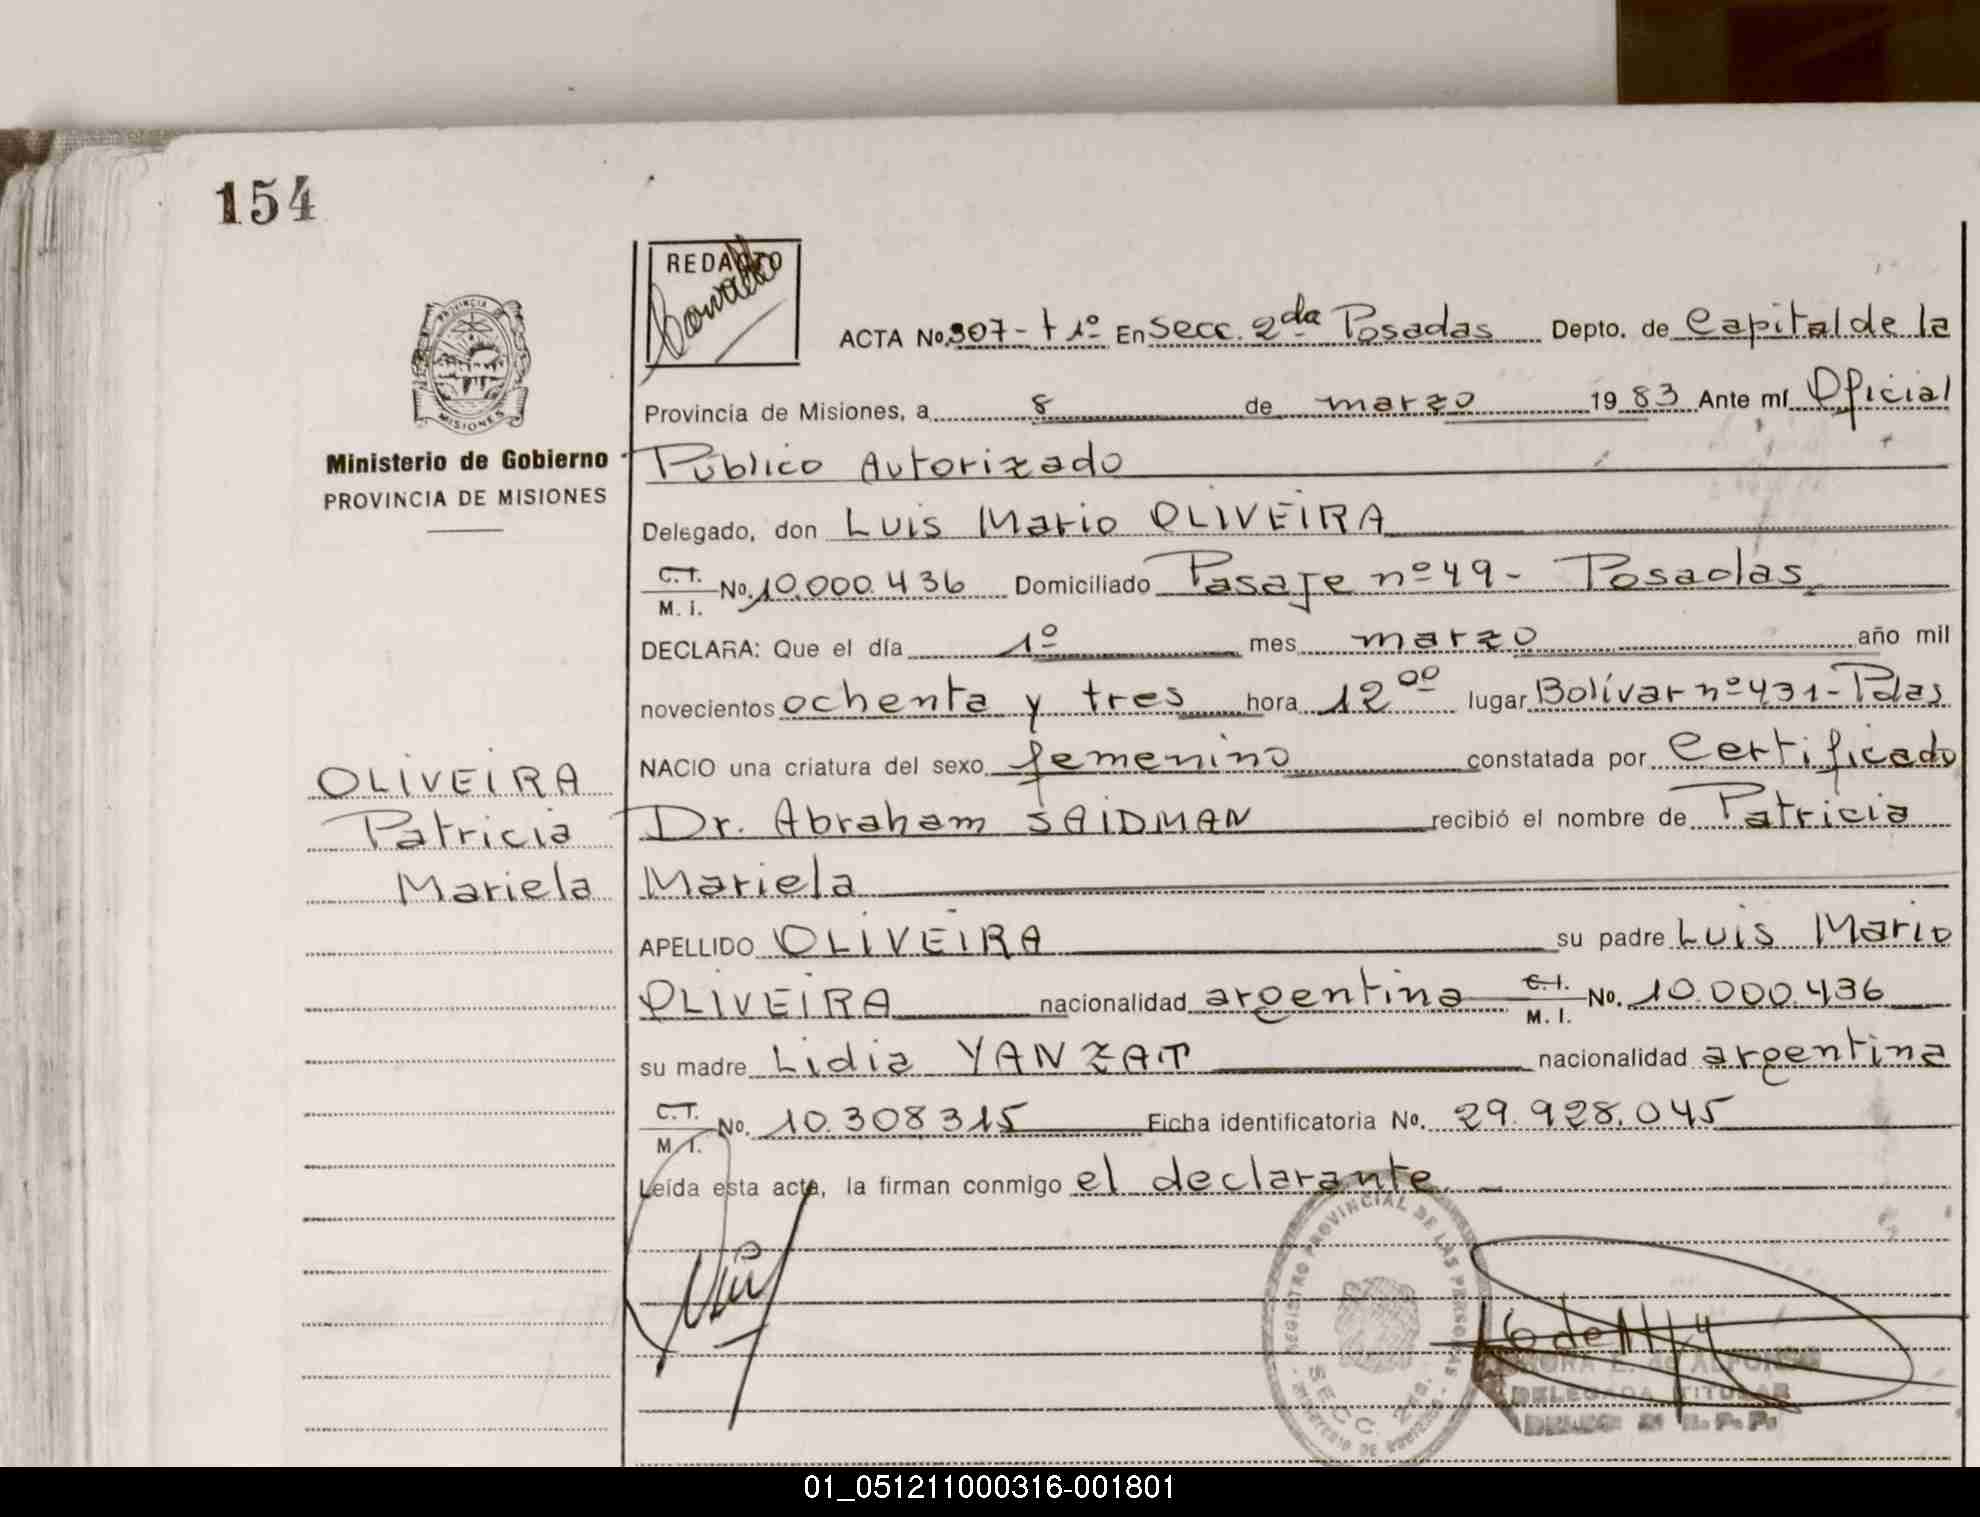 154
REDACTO
ACTA No. 307 - t 1º En Secc. 2da Posadas Depto. de Capital de la
Provincia de Misiones, a 8 de marzo 19 83 Ante mí Oficial
Ministerio de Gobierno
PROVINCIA DE MISIONES
Público Autorizado
Delegado, don Luis Mario OLIVEIRA
C.I. M. I. No. 10.000.436 Domiciliado Pasaje nº 49 - Posadas
DECLARA: Que el día 1º mes marzo año mil
novecientos ochenta y tres hora 12 00 lugar Bolívar nº 431 - Pdas
NACIO una criatura del sexo femenino constatada por Certificado
OLIVEIRA
Patricia
Mariela
Dr. Abraham SAIDMAN recibió el nombre de Patricia
Mariela
APELLIDO OLIVEIRA su padre Luis Mario
OLIVEIRA nacionalidad argentina C.I. M. I. No. 10.000.436
su madre Lidia YANZAT nacionalidad argentina
C.I. M. I. No. 10.308315 Ficha identificatoria No. 29.928.045
Leída esta acta, la firman conmigo el declarante
REGISTRO PROVINCIAL DE LAS PERSONAS
SECC. 2da.
MINISTERIO DE GOBIERNO
DELEGADA TITULAR
01_051211000316-001801